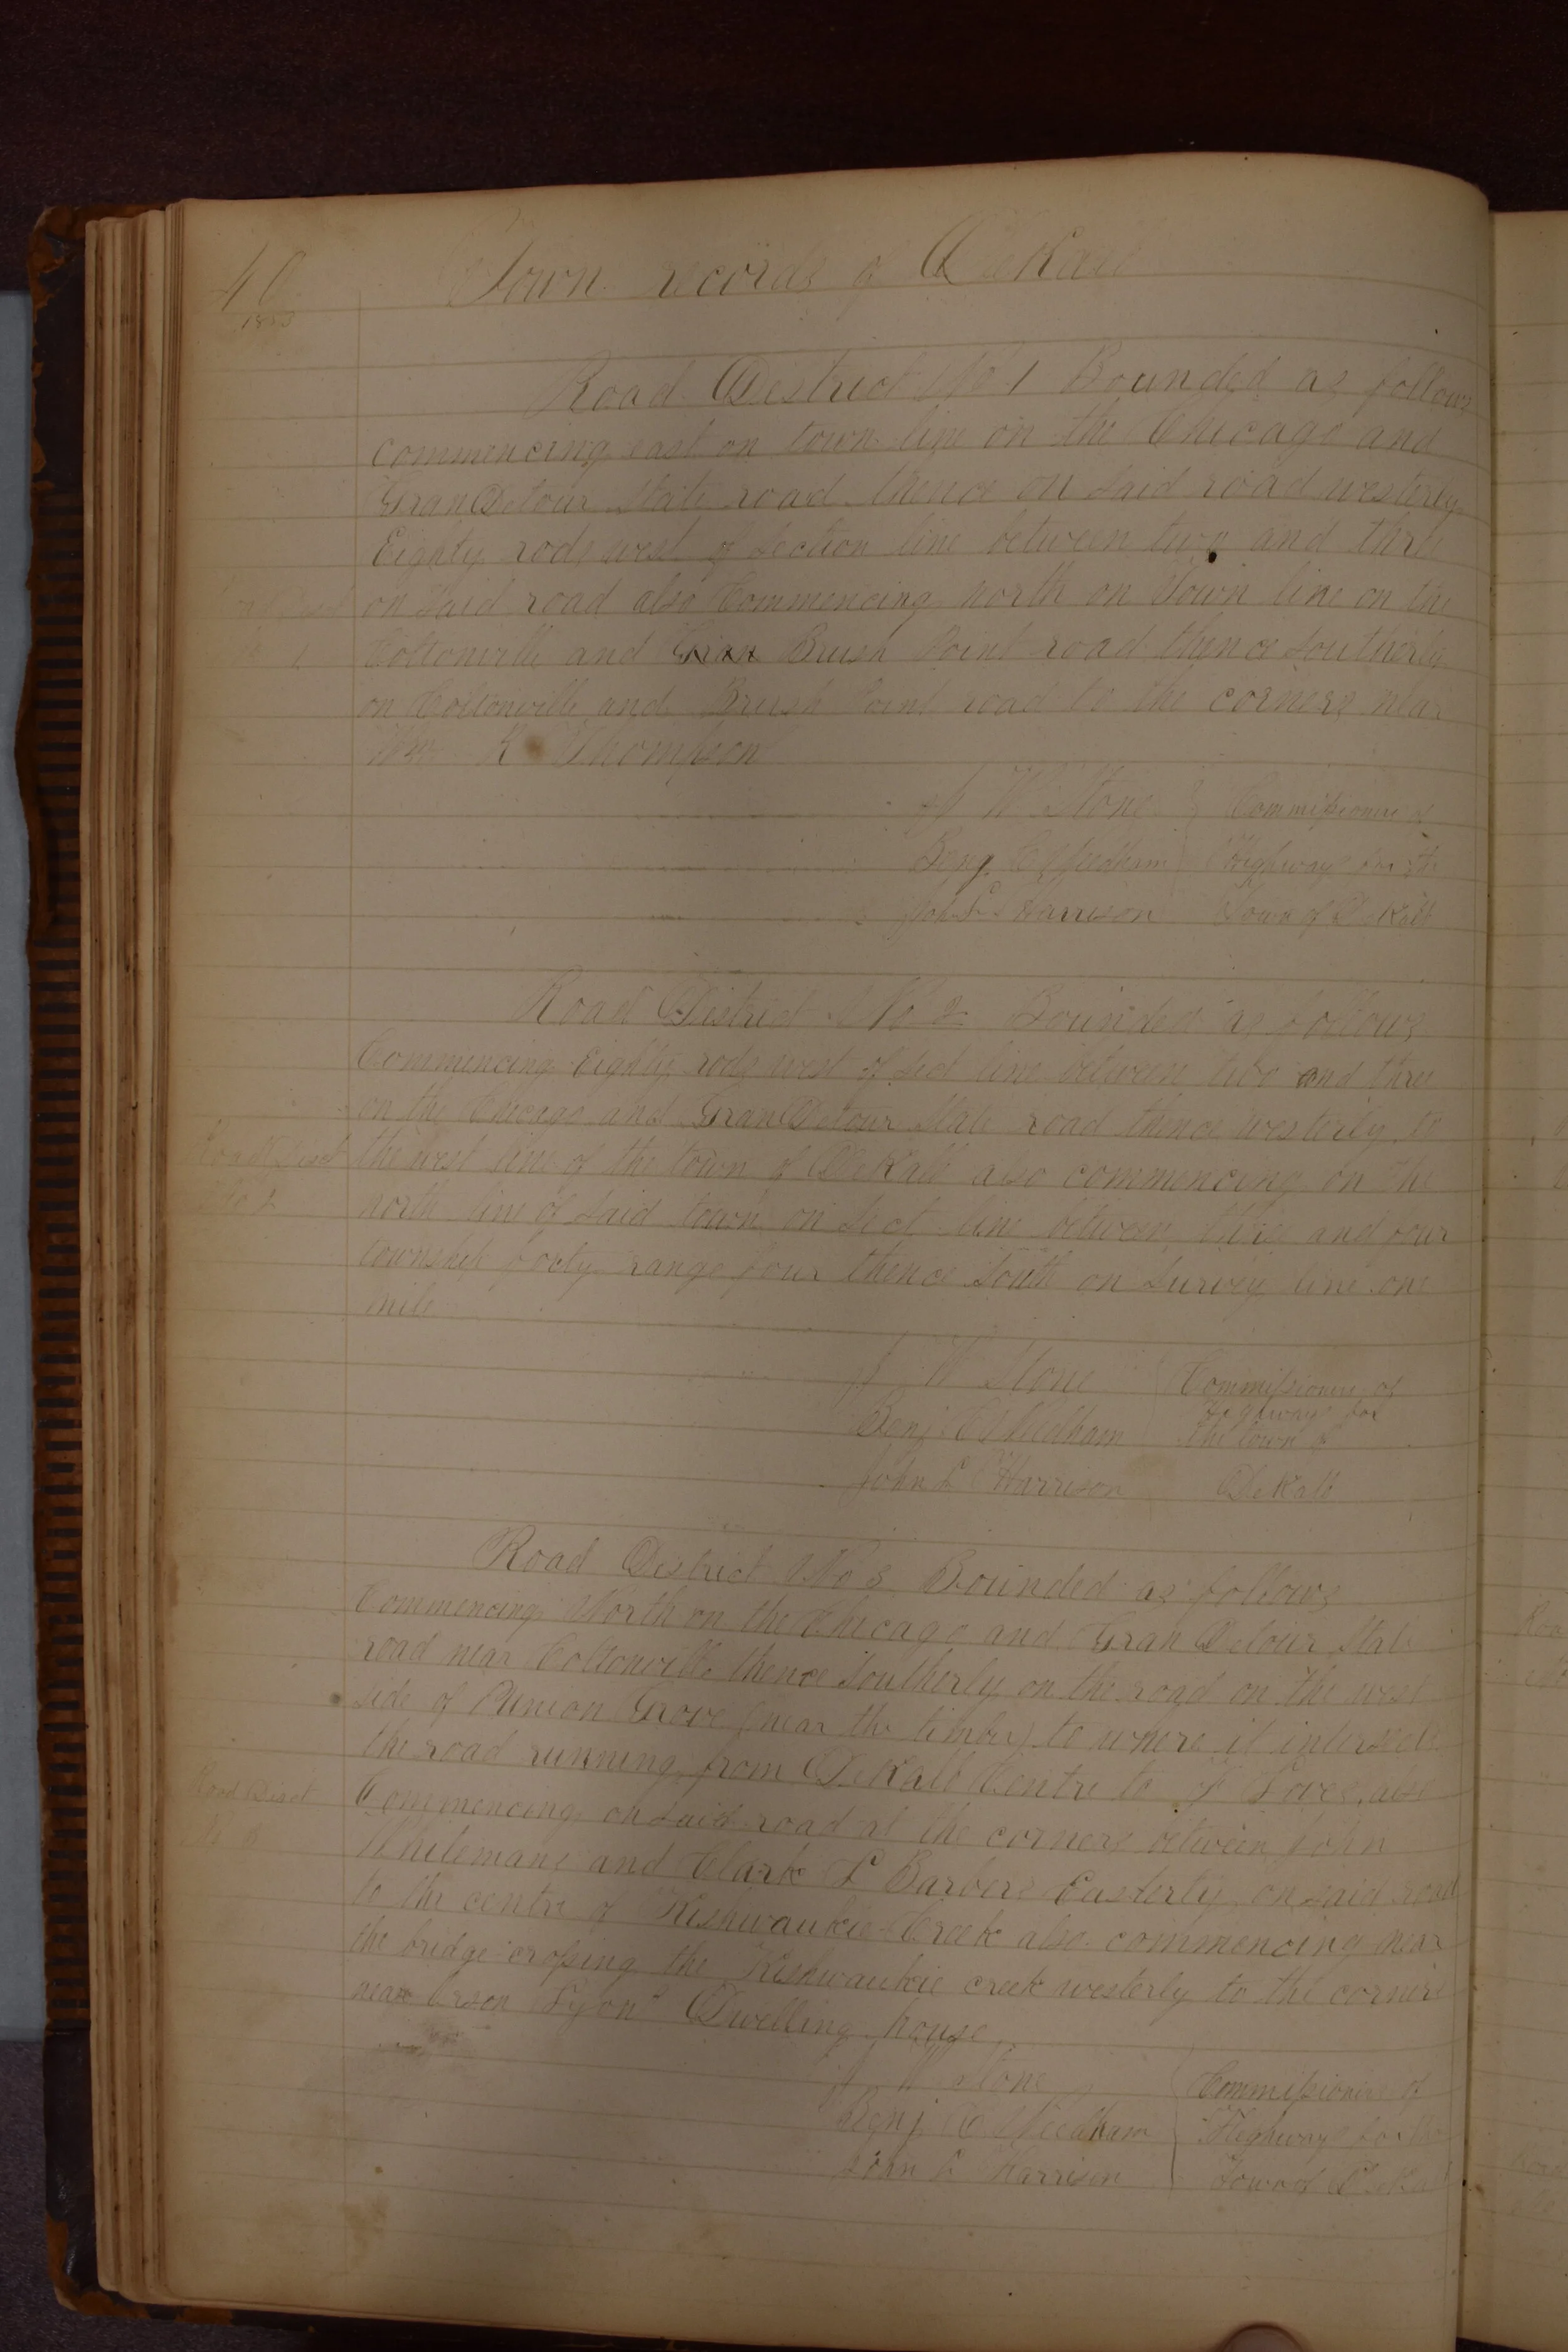 40
1853
Town records of DeKalb
Road District No 1 Bounded as follows
commencing east on town line on the Chicago and
Gran Detour State road thence on said road westerly
Eighty rods west of section line between two and three
on said road also Commencing north on Town line on the
Road Dist
No 1
Coltonville and Gran Brush Point road thence Southerly
on Coltonville and Brush Point road to the corners near
Wm K Thompson
J W Stone Commissioners of
Benj C Needham Highways for the
John L Harrison Town of DeKalb
Road District No 2 Bounded as follows
Commencing Eighty rods west of Sect line between two and three
on the Chicago and Gran Detour State road thence westerly to
Road Dist
No 2
the west line of the town of DeKalb also commencing on the
north line of Said town on Sect line between three and four
township forty range four thence South on Survey line one
mile
J W Stone Commissioners of
Highways for
Benj C Needham the town of
John L Harrison DeKalb
Road District No 3 Bounded as follows
Commencing North on the Chicago and Gran Detour State
road near Coltonville thence Southerly on the road on the west
side of Union Grove (near the timber) to where it intersects
the road running from DeKalb Centre to also
Road Dist
No 3
Commencing on said road at the corners between John
Whitemans and Clark L Barbers Easterly on said road
to the centre of Kishwaukie Creek also commencing near
the bridge crossing the Kishwaukie creek westerly to the corners
near Orson Lyons Dwelling house
J W Stone Commissioners of
Benj C Needham Highways for the
John L Harrison Town of DeKalb